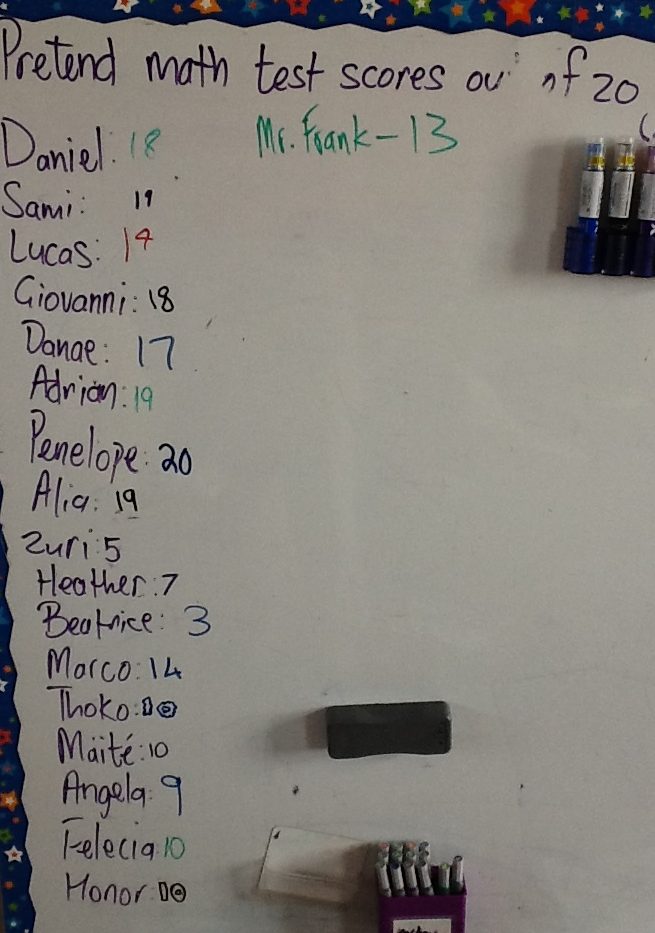 Pretend math test scores ou of 20
Daniel: 18
Mr. Frank - 13
Sami: 19
Lucas: 19
Giovanni: 18
Danae: 17
Adrian: 19
Penelope: 20
Alia: 19
Zuri: 5
Heather: 7
Beatrice: 3
Marco: 14
Thoko: 10
Maïté: 10
Angela: 9
Felecia: 10
Honor: 10